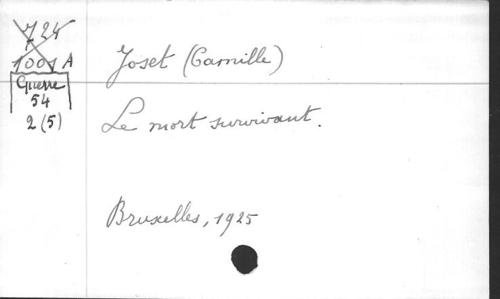 724
1001 A
Guerre
54
2 (5)
Joset (Camille)
Le mort survivant.
Bruxelles, 1925